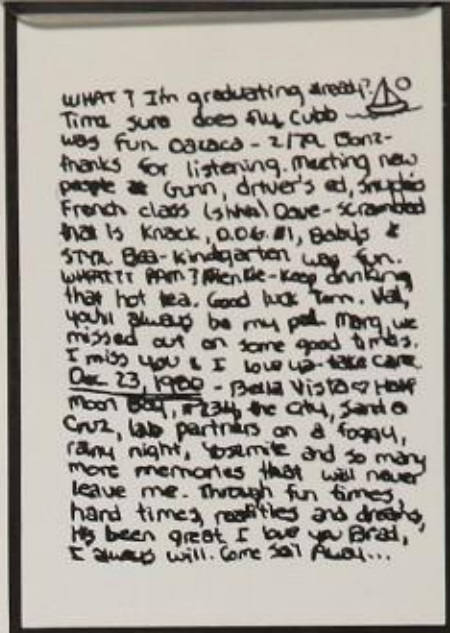 WHAT? I'm graduating already?
Time sure does fly. Cubb
was fun. Oaxaca - 2/79. Bonz-
thanks for listening. Meeting new
people Gunn, driver's ed,
French class (shhh) Dave-scrambled
that is Knack, D.O.G. #1, Babys &
STYX. Bea-Kindgarten was fun.
WHAT?? PAM? -Keep drinking
that hot tea. Good luck Tam. Val,
you'll always be my pal. Marg, we
missed out on some good times.
I miss you & I love ya-take care.
Dec 23, 1980 - Bella Vista ♡ Half
Moon Bay, #234, the city, Santa
Cruz, lab partners on a foggy,
rainy night, Yosemite and so many
more memories that will never
leave me. Through fun times,
hard times, realities and dreams,
it's been great. I love you Brad,
I always will. Come Sail Away...